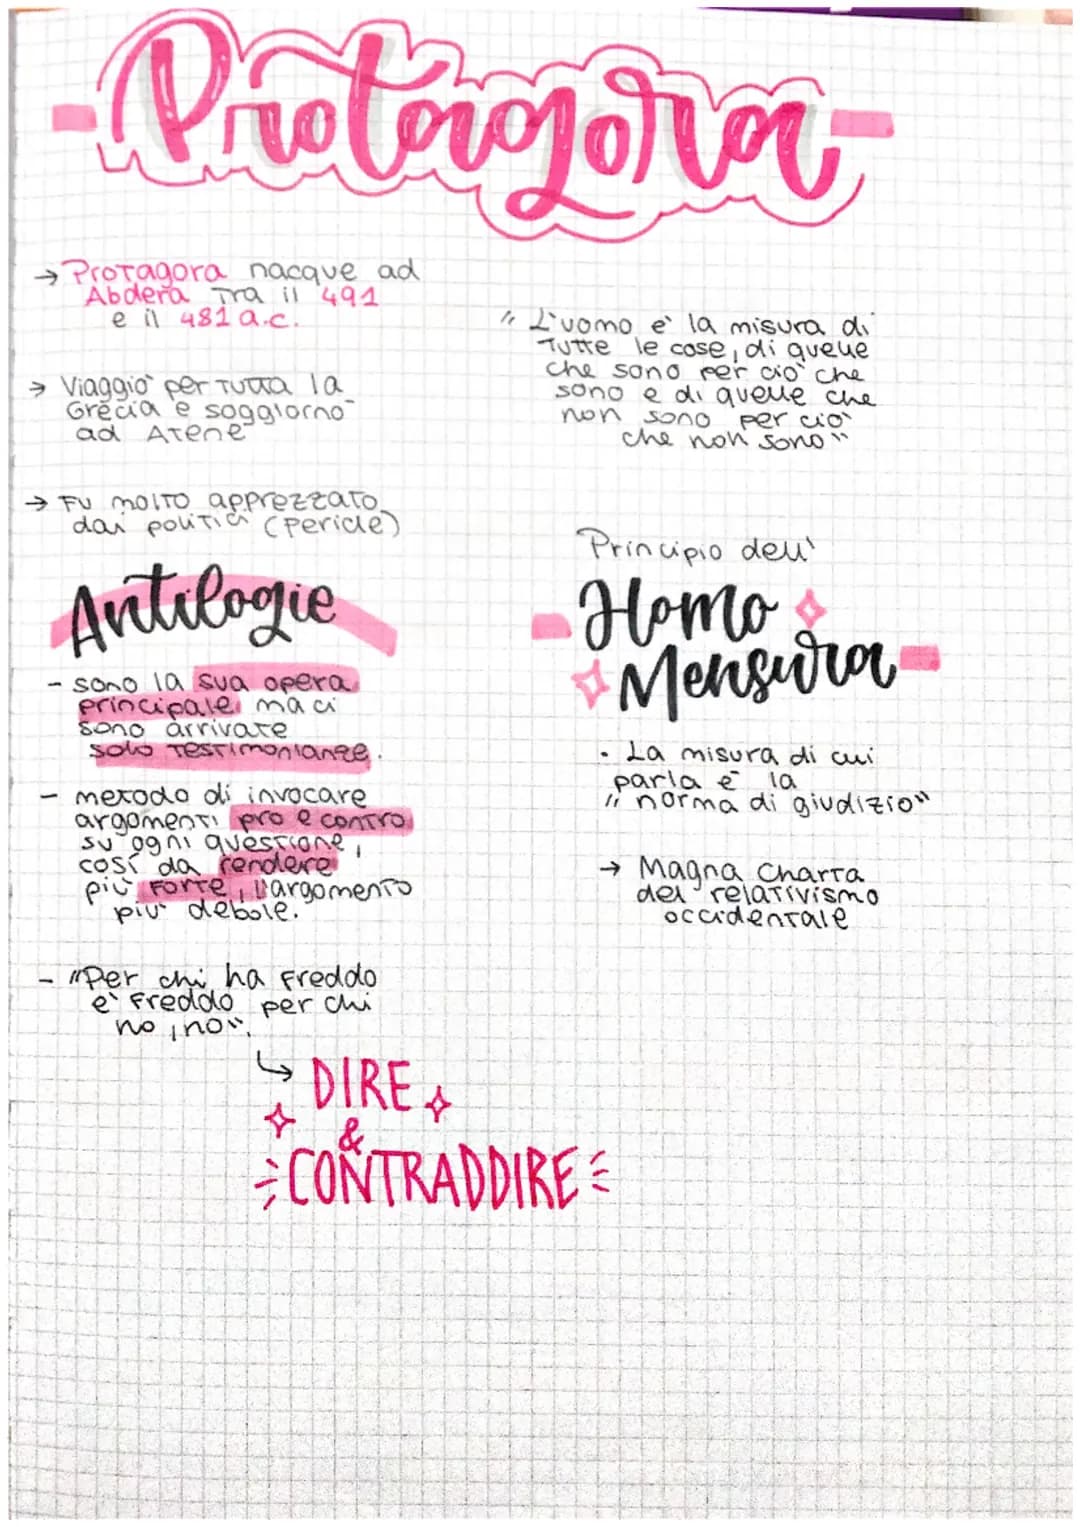 Protagora
→ Protagora nacque ad
Abdera tra il 491
e il 481 a.c.
→ Viaggio' per tutta la
Grecia e soggiorno'
ad Atene
→ Fu molto apprezzato
dai politici (Pericle)
Antilogie
- sono la sua opera
principale, ma ci
sono arrivate
solo testimonianze.
- metodo di invocare
argomenti pro e contro
su ogni questione,
così da rendere
più forte, l'argomento
più debole.
- "Per chi ha freddo
e' freddo per chi
no, no".
↳ DIRE
&
CONTRADDIRE
"L'uomo e' la misura di
tutte le cose, di quelle
che sono per cio' che
sono e di quelle che
non sono per cio'
che non sono"
Principio dell'
Homo
Mensura
· La misura di cui
parla è la
"norma di giudizio"
→ Magna Charta
del relativismo
occidentale